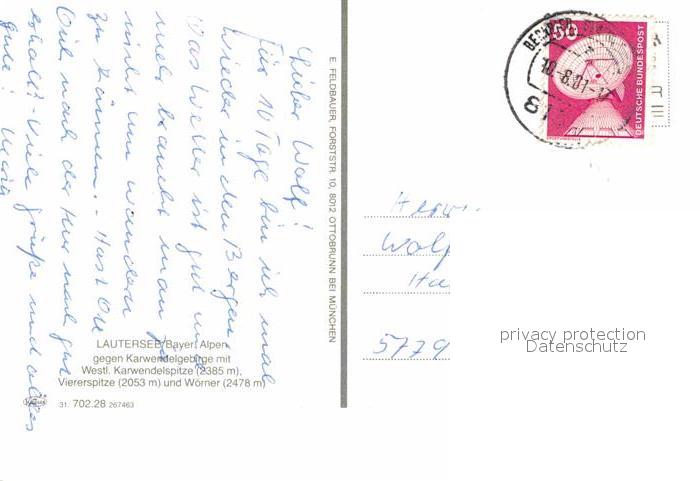 Lieber Wolf!
Für 10 Tage bin ich mal
wieder in den Bergen.
Das Wetter ist gut und
mehr braucht man ja
nicht um wandern
zu können. - Hast Du
Dich nach der Kur noch gut
erholt? - Viele Grüße und alles
gute! Maria
LAUTERSEE/Bayer. Alpen
gegen Karwendelgebirge mit
Westl. Karwendelspitze (2385 m),
Viererspitze (2053 m) und Wörner (2478 m)
31. 702.28 267463
E. FELDBAUER, FORSTSTR. 10, 8012 OTTOBRUNN BEI MÜNCHEN
50
DEUTSCHE BUNDESPOST
18.-8.81-17
Herrn
Wolf
Ha
5779
privacy protection
Datenschutz